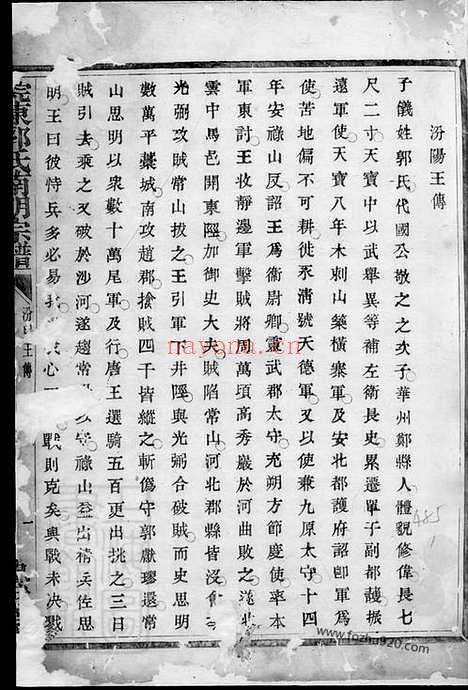 汾陽王傳
子儀姓郭氏代國公敬之之次子華州鄭縣人體貌修偉長七
尺二寸天寶中以武舉異等補左衛長史累遷單于副都護振
遠軍使天寶八年木刺山築橫塞軍及安北都護府詔卽軍爲
使苦地偏不可耕徙永清號天德軍又以使兼九原太守十四
年安祿山反詔王爲衛尉卿靈武郡太守充朔方節度使率本
軍東討王收靜邊軍擊賊將周萬頃高秀巖於河曲敗之遂
雲中馬邑開東陘加御史大夫賊陷常山河北郡縣皆沒
光弼攻賊常山拔之王引軍下井陘與光弼合破賊而史思明
數萬平藁城南攻趙郡擒賊四千皆縱之斬僞守郭獻璆還常
山思明以衆數十萬尾軍及行唐王選騎五百更出挑之三日
賊引去乘之又破於沙河遂趨常 以 祿山益出精兵佐思
明王曰彼恃兵多必易 心 戰則克矣與戰未决戮
皖東郭氏南明宗譜
汾陽王傳
一
485
nayona.cn
www.fozhu920.com